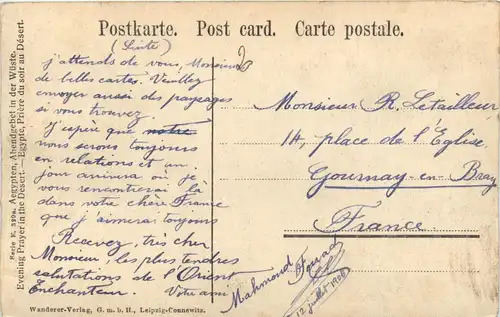 Postkarte. Post card. Carte postale.
(Suite)
j'attends de vous, Monsieur
de belles cartes. Veuillez
envoyer aussi des paysages
si vous trouvez.
J'espère que notre
nous serons toujours
en relations et un
jour arrivera où je
vous rencontrerai là
dans notre chère France
que j'aimerai toujours
Recevez, très cher
Monsieur, les plus tendres
salutations de l'Orient
Enchanteur. Votre ami
Mahmoud Fouad
12 juillet 1908
Monsieur R. Letailleur
14, place de l'Église
Gournay-en-Bray
France
Serie K. Aegypten, Abendgebet in der Wüste.
Evening Prayer in the Desert. — Egypte, Prière du soir au Désert.
Wanderer-Verlag, G. m. b. H., Leipzig-Connewitz.